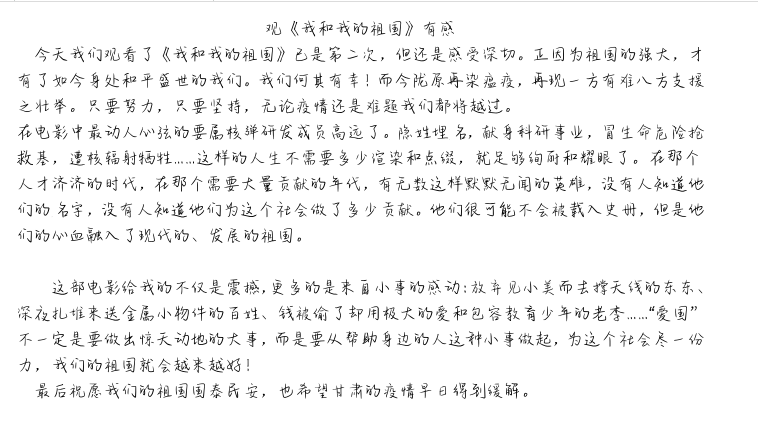 观《我和我的祖国》有感
今天我们观看了《我和我的祖国》已是第二次，但还是感受深切。正因为祖国的强大，才
有了如今身处和平盛世的我们。我们何其有幸！而今陇原再染瘟疫，再现一方有难八方支援
之壮举。只要努力，只要坚持，无论疫情还是难题我们都将越过。
在电影中最动人心弦的要属核弹研发成员高远了。隐姓埋名，献身科研事业，冒生命危险抢
救基，遭核辐射牺牲……这样的人生不需要多少渲染和点缀，就足够绚耐和耀眼了。在那个
人才济济的时代，在那个需要大量贡献的年代，有无数这样默默无闻的英雄，没有人知道他
们的名字，没有人知道他们为这个社会做了多少贡献。他们很可能不会被载入史册，但是他
们的心血融入了现代的、发展的祖国。
这部电影给我的不仅是震撼，更多的是来自小事的感动：放弃见小美而去撑天线的东东、
深夜扎堆来送金属小物件的百姓、钱被偷了却用极大的爱和包容教育少年的老李……“爱国”
不一定是要做出惊天动地的大事，而是要从帮助身边的人这种小事做起，为这个社会尽一份
力，我们的祖国就会越来越好！
最后祝愿我们的祖国国泰民安，也希望甘肃的疫情早日得到缓解。